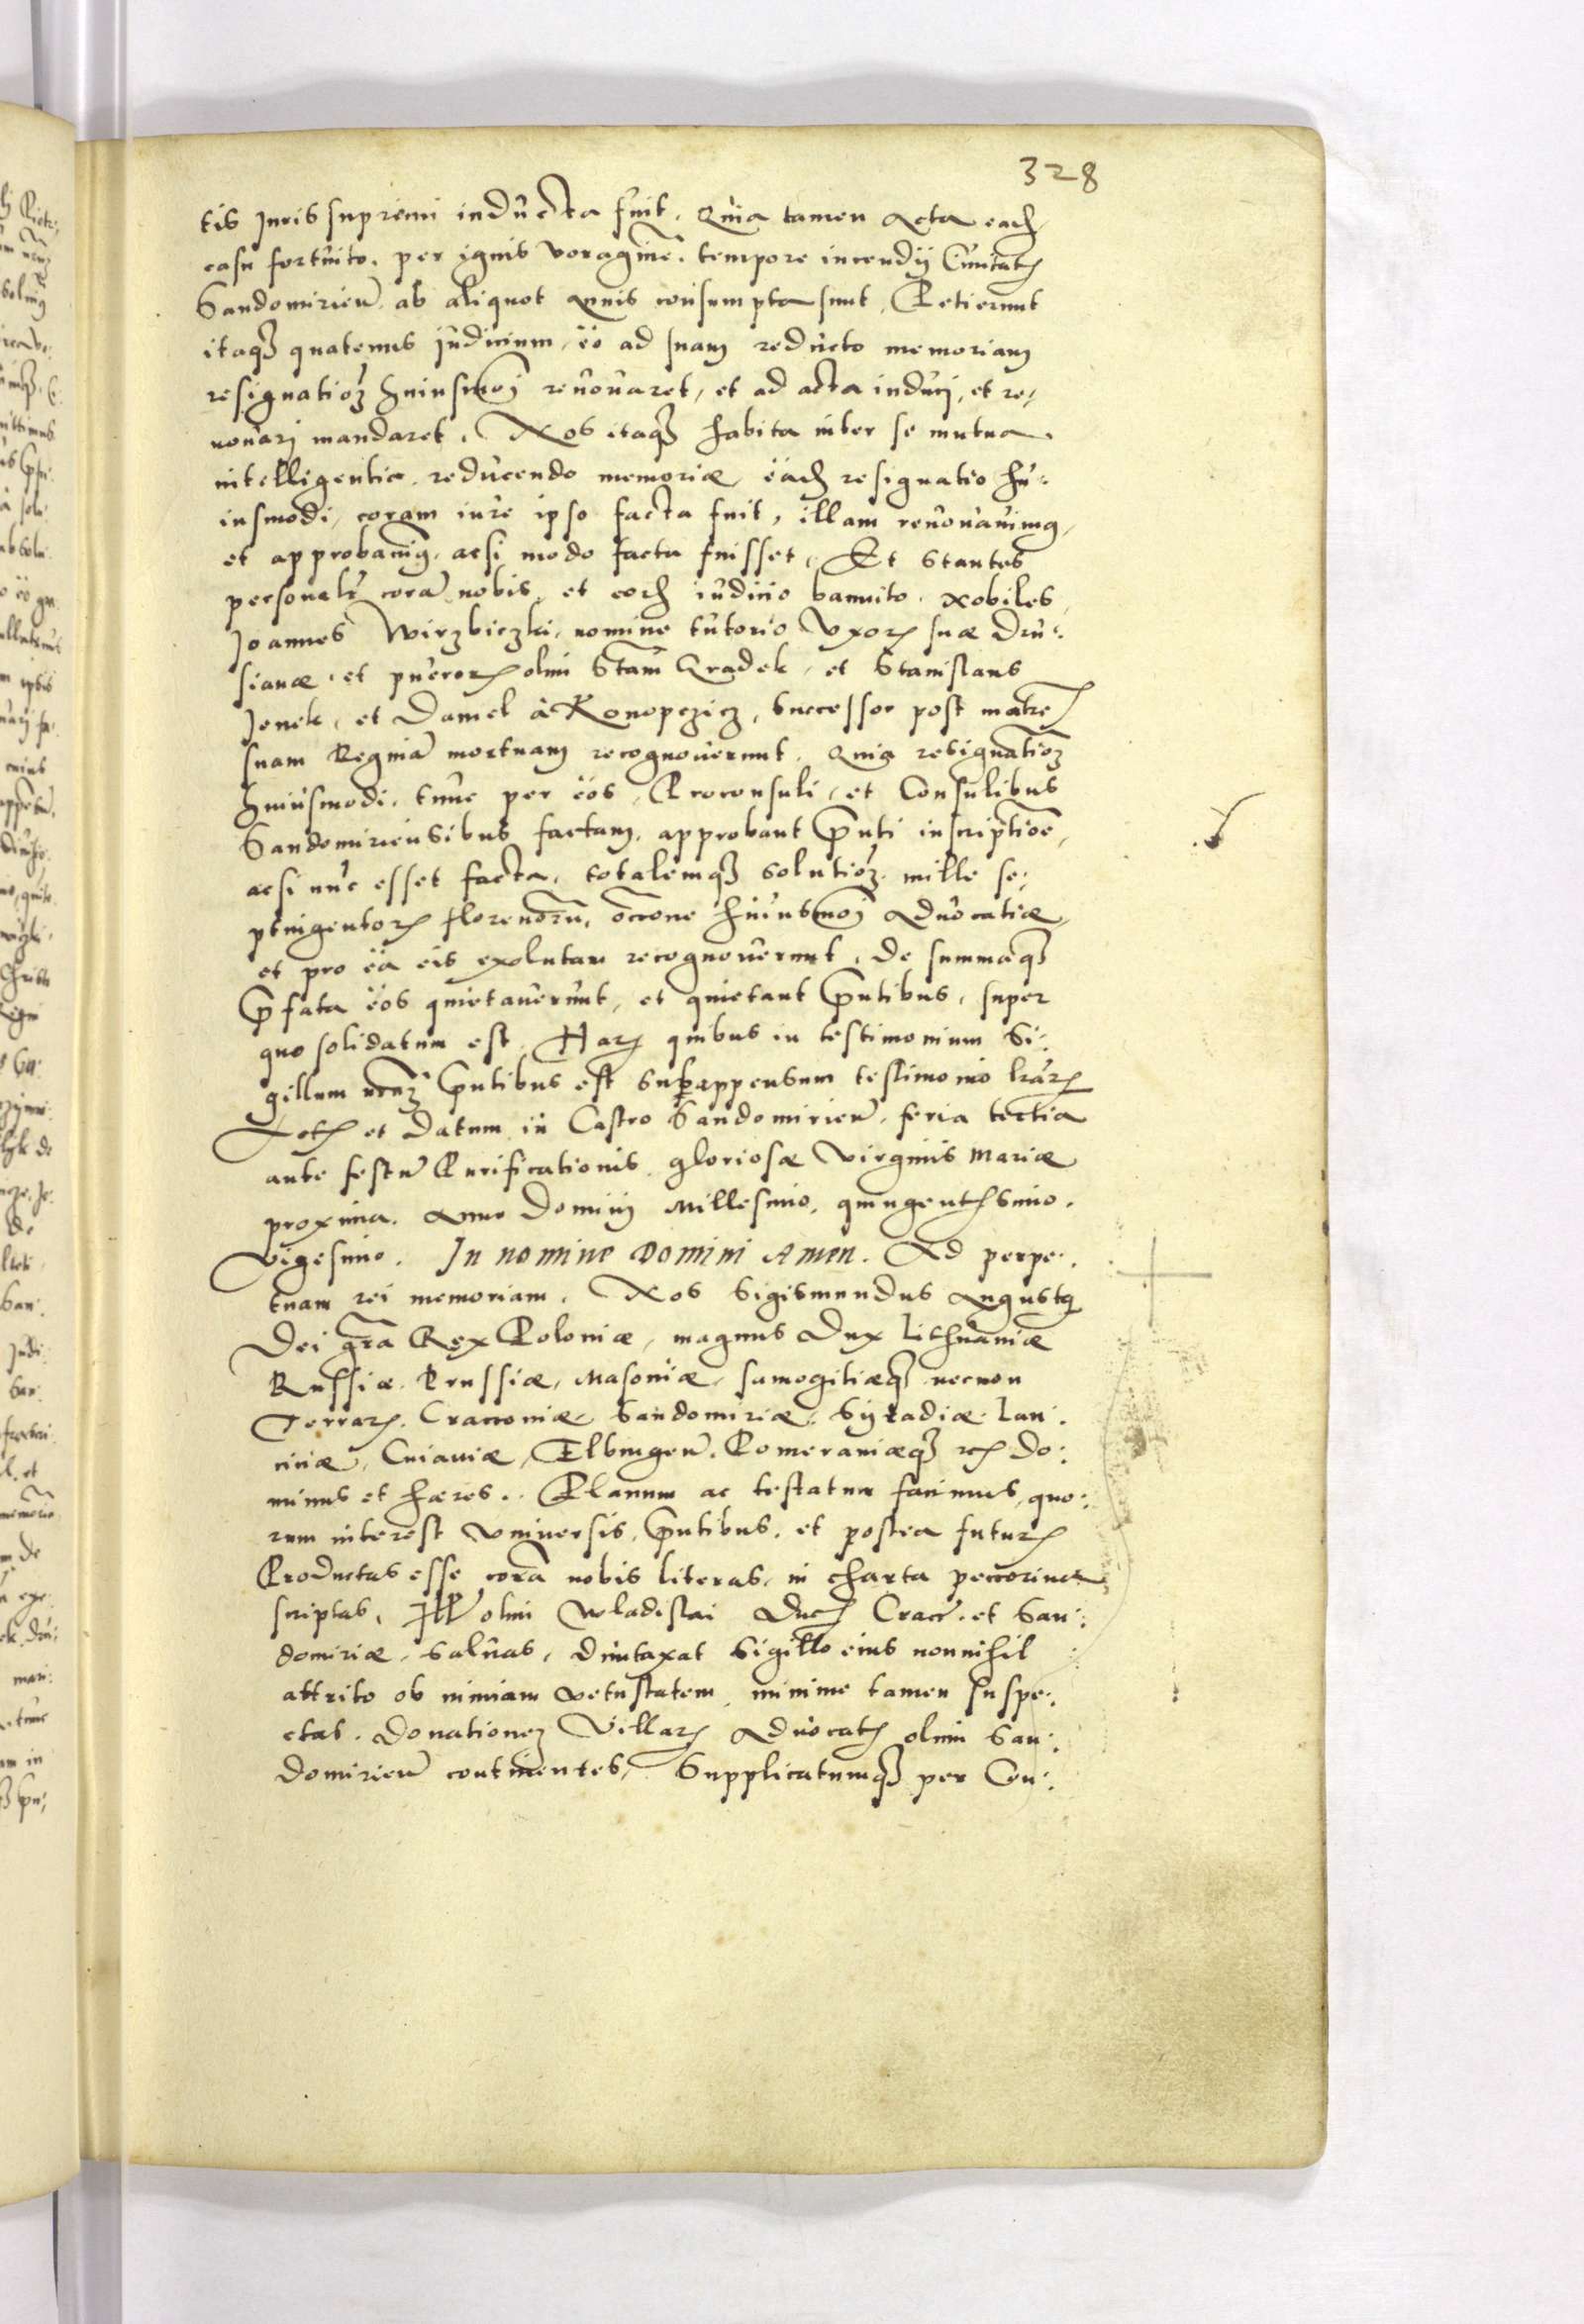 328
tis Juris supremi inducta fuit. Quia tamen Acta eadē
casu fortuito, per ignis voraginē, tempore incendij Ciuitatꝭ
Sandomirieñ ab aliquot annis consumpta sunt, Petierunt
itaqꝫ quatenus judicium, eo ad suam reducto memoriam
resignatioꝫ huiusmoi renouaret, et ad acta induci, et re-
nouari mandaret. Nos itaqꝫ habita inter se mutua
intelligentia, reducendo memoriæ eadē resignatio hu:
iusmodi, coram iure ipso facta fuit, illam renouauimꝯ,
et approbauimꝯ, acsi modo facta fuisset, Et stantes
personalr̃ corā nobis, et eodē iudicio bannito, Nobiles
Joannes Wirzbiczki, nomine tutorio Vxorꝭ suæ Dru:
sianæ, et puerorꝝ olim Stañ Gradek, et Stanislaus
Jenek, et Daniel à Konopczicz, successor post matrē
suam Reginā mortuam recognouerunt. Quia resignatioꝫ
huiusmodi, tunc per eos, Proconsuli, et Consulibus
Sandomiriensibus factam, approbant p̃nti inscriptioē,
acsi nūc esset facta, totalemqꝫ solutioꝫ mille se:
ptingentorꝝ florenorū, occōne huiusmoi Aduocatiæ,
et pro ea eis exolutam recognouerunt, De summaqꝫ
p̃fata eos quietauerunt, et quietant p̃ntibus, super
quo solidatum est. Harꝝ quibus in testimonium Si:
gillum nr̃uꝫ p̃ntibus est subappensum testimonio lr̃arꝝ
Actꝭ et Datum in Castro Sandomirieñ, feria tertia
ante festū Purificationis gloriosæ Virginis Mariæ
proxima. Anno Domini Millesimo, quingentesimo.
Vigesimo. In nomine Domini Amen. Ad perpe:
tuam rei memoriam. Nos Sigismundus Augustꝯ
Dei gr̃a Rex Poloniæ, magnus Dux Lithuaniæ
Russiæ, Prussiæ, Masouiæ, samogitiæqꝫ necnon
Terrarꝝ. Cracouiæ, Sandomiriæ, Syradiæ, Lan:
ciciæ, Cuiauiæ, Elbingeñ. Pomeraniæqꝫ etc̃ do:
minus et hæres. Planum ac testatum facimus, quo:
rum interest vniuersis, p̃ntibus, et postea futurꝭ
Productas esse corā nobis literas, in charta peccorinea
scriptas, Illr̃ olim Wladislai Ducꝭ Crac̃. et San:
domiriæ, saluas, duntaxat sigillo eius nonnihil
attrito ob nimiam vetustatem, minime tamen suspe:
ctas. Donationeꝫ Villarꝝ Aduocatꝭ olim San:
domirieñ continentes, Supplicatumqꝫ per Con: